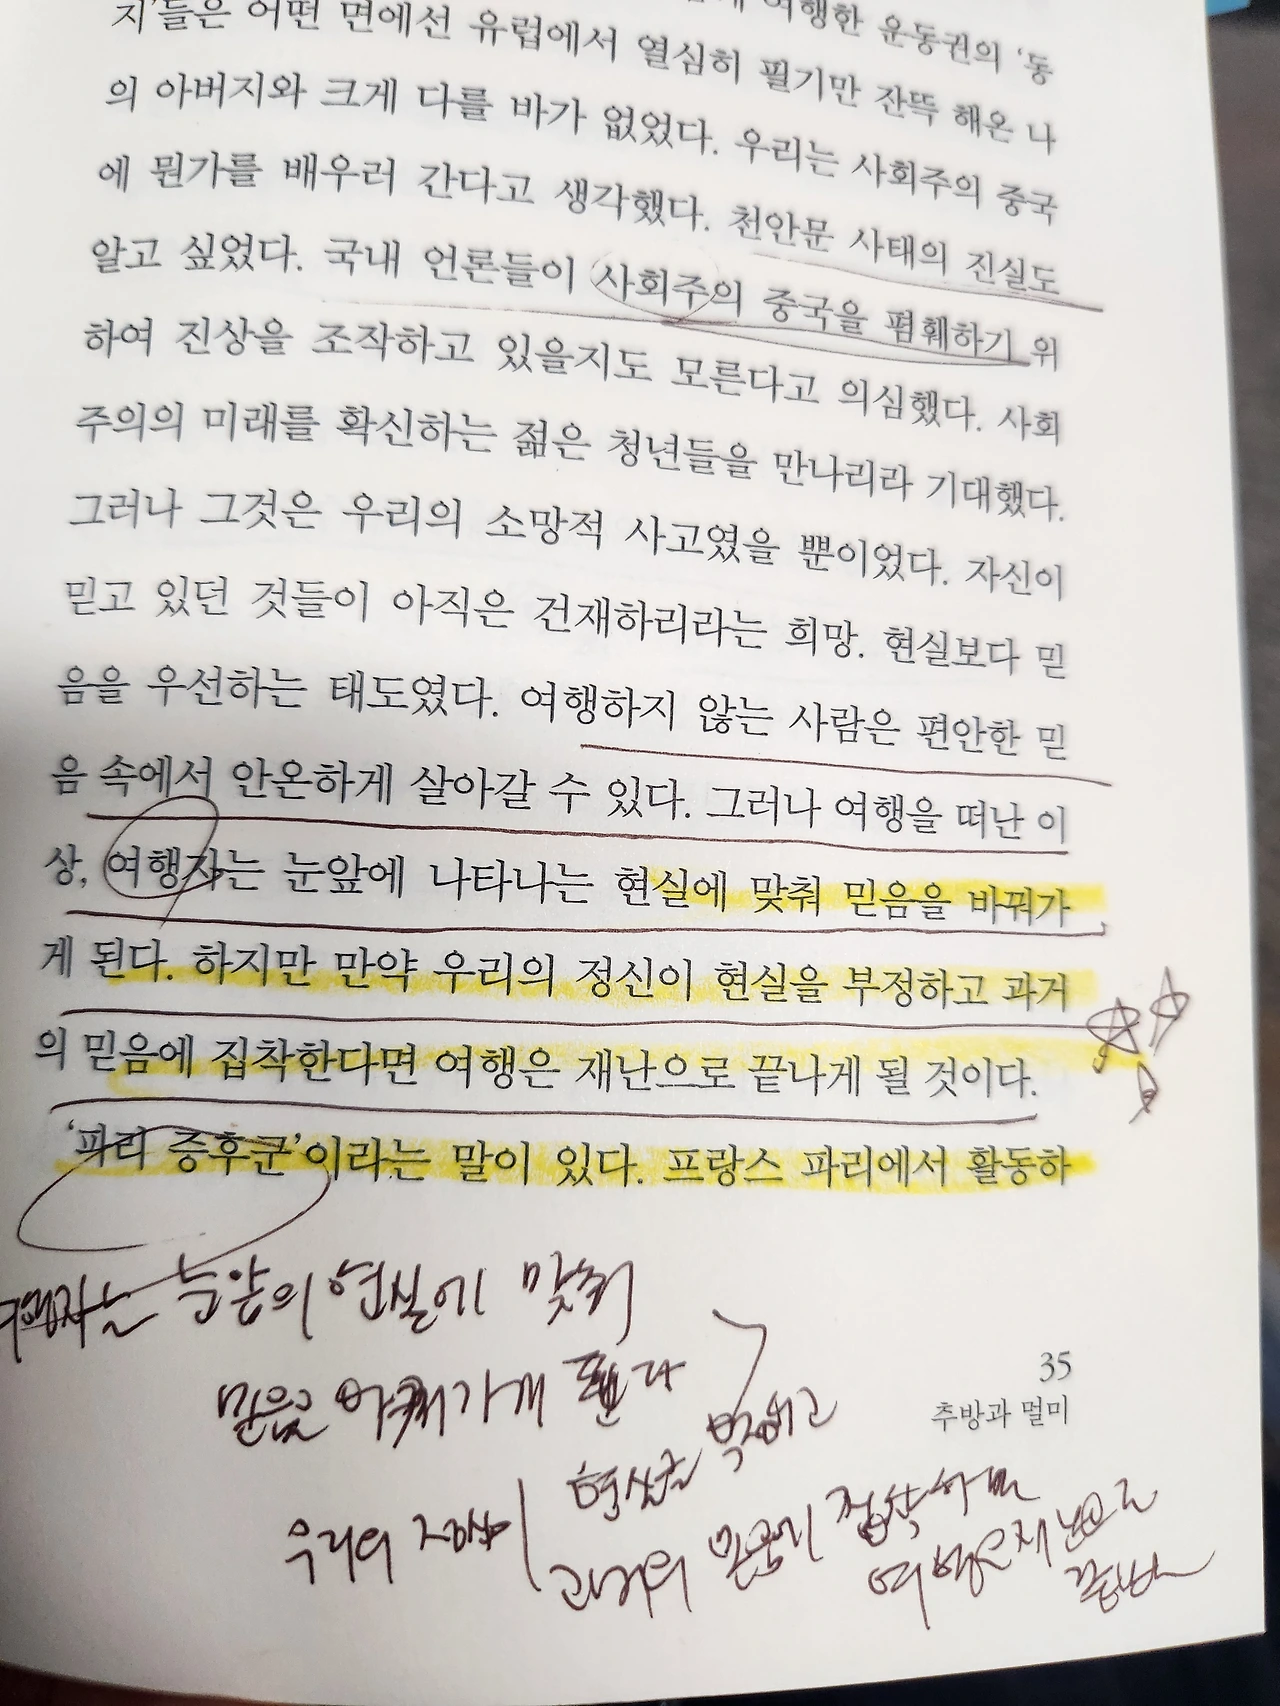 여행한 운동권의 ‘동
지’들은 어떤 면에선 유럽에서 열심히 필기만 잔뜩 해온 나
의 아버지와 크게 다를 바가 없었다. 우리는 사회주의 중국
에 뭔가를 배우러 간다고 생각했다. 천안문 사태의 진실도
알고 싶었다. 국내 언론들이 사회주의 중국을 폄훼하기 위
하여 진상을 조작하고 있을지도 모른다고 의심했다. 사회
주의의 미래를 확신하는 젊은 청년들을 만나리라 기대했다.
그러나 그것은 우리의 소망적 사고였을 뿐이었다. 자신이
믿고 있던 것들이 아직은 건재하리라는 희망. 현실보다 믿
음을 우선하는 태도였다. 여행하지 않는 사람은 편안한 믿
음 속에서 안온하게 살아갈 수 있다. 그러나 여행을 떠난 이
상, 여행자는 눈앞에 나타나는 현실에 맞춰 믿음을 바꿔가
게 된다. 하지만 만약 우리의 정신이 현실을 부정하고 과거
의 믿음에 집착한다면 여행은 재난으로 끝나게 될 것이다.
‘파리 증후군’이라는 말이 있다. 프랑스 파리에서 활동하
여행자는 눈앞의 현실에 맞춰
믿음을 바꿔가게 된다
35
추방과 멀미
우리의 정신이 현실을 부정하고
과거의 믿음에 집착하면
여행은 재난으로